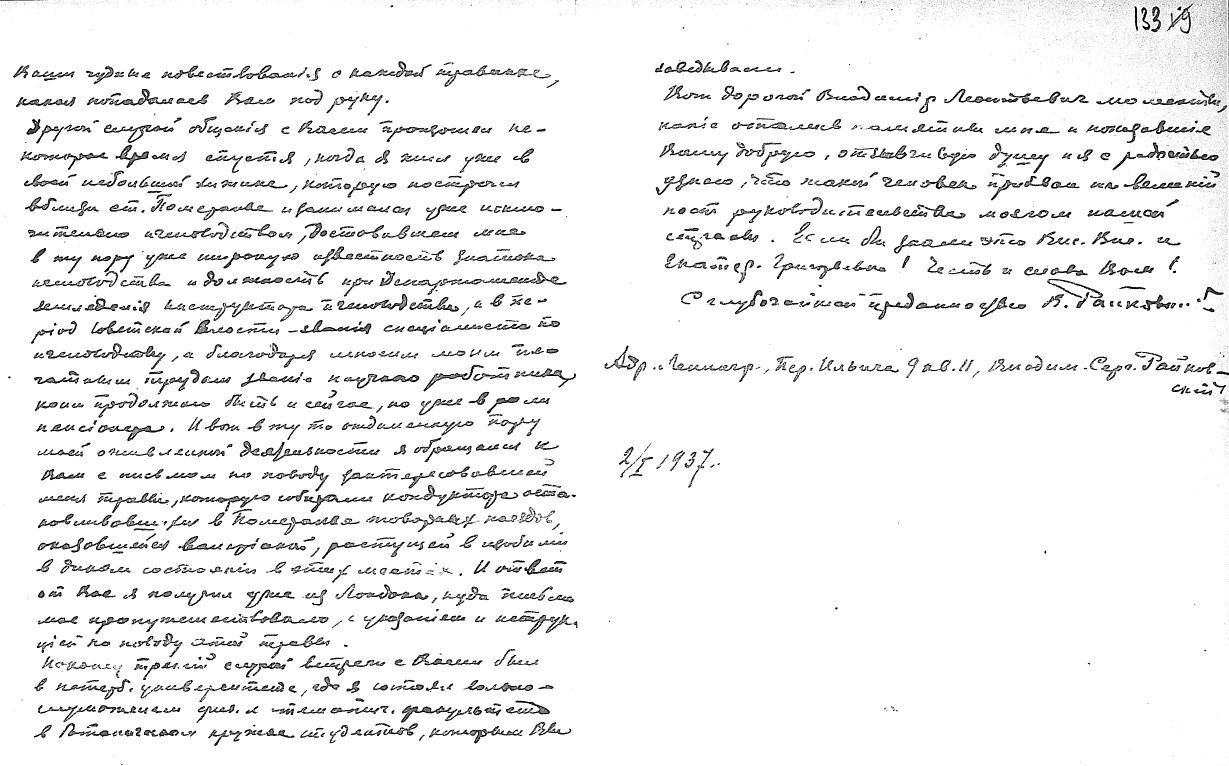 133
Ваши чудные повествованія о каждой травинке,
какая попадалась Вам под руку.
Другой случай общения с Вами произошел не-
которое время спустя, когда я жил уже в
своей небольшой хижине, которую построил
вблизи ст. Померанье и занимался уже исклю-
чительно пчеловодством, доставившем мне
в ту пору уже широкую известность знатока
пчеловодства и должность при Департаменте
земледелія инструктора пчеловодства, а в пе-
ріод Советской Власти – званія спеціалиста по
пчеловодству, а благодаря многим моим пе-
чатным трудам званіе научнаго работника,
коим продолжаю быть и сейчас, но уже в роли
пенсіонера. И вот в ту то отдаленную пору
моей оживленной деятельности я обращался к
Вам с письмом по поводу заинтересовавшей
меня травы, которую собирали кондуктора оста-
навливавшихся в Померанье товарных поездов,
оказавшейся валеріаной, растущей в изобиліи
в диком состояніи в этих местах. И ответ
от Вас я получил уже из Лондона, куда письмо
мое пропутешествовало, с указаніем и инструк-
ціей по поводу этой травы.
Наконец третій случай встречи с Вами был
в петерб. университете, где я состоял вольно-
слушателем физ. математич. факультета
в Ботаническом кружке студентов, которым Вы
заведывали.
Вот дорогой Владимір Леонтьевич моменты,
какіе остались памятны мне и показавшіе
Вашу добрую, отзывчивую душу и я с радостью
узнал, что такой человек призван на великій
пост руководительства мозгом нашей
страны. Если бы знали это Вис. Вис. и
Екатер. Григорьевна! Честь и слава Вам!
С глубочайшей преданностью В. Райковскій
Адр. Ленингр., Пер. Ильича 9 кв. 11, Владим. Серг. Райков-
скій
2/I 1937.